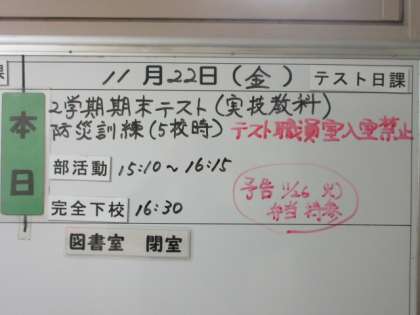 課
11月22日(金) テスト日課
本日
2学期期末テスト(実技教科)
防災訓練(5校時) テスト職員室入室禁止
部活動 15:10〜16:15
完全下校 16:30
予告 11/26 火)
弁当持参
図書室 閉室